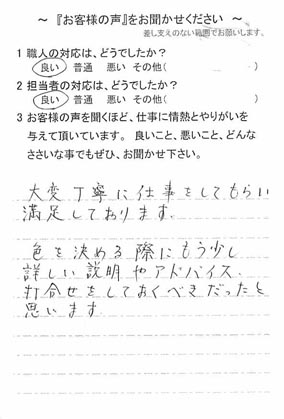 ～ 『お客様の声』をお聞かせください ～
差し支えのない範囲でお願いします。
1 職人の対応は、どうでしたか？
良い 普通 悪い その他( )
2 担当者の対応は、どうでしたか？
良い 普通 悪い その他( )
3 お客様の声を聞くほど、仕事に情熱とやりがいを
与えて頂いています。 良いこと、悪いこと、どんな
ささいな事でもぜひ、お聞かせ下さい。
大変丁寧に仕事をしてもらい
満足しております。
色を決める際にもう少し
詳しい説明やアドバイス、
打合せをしておくべきだったと
思います。